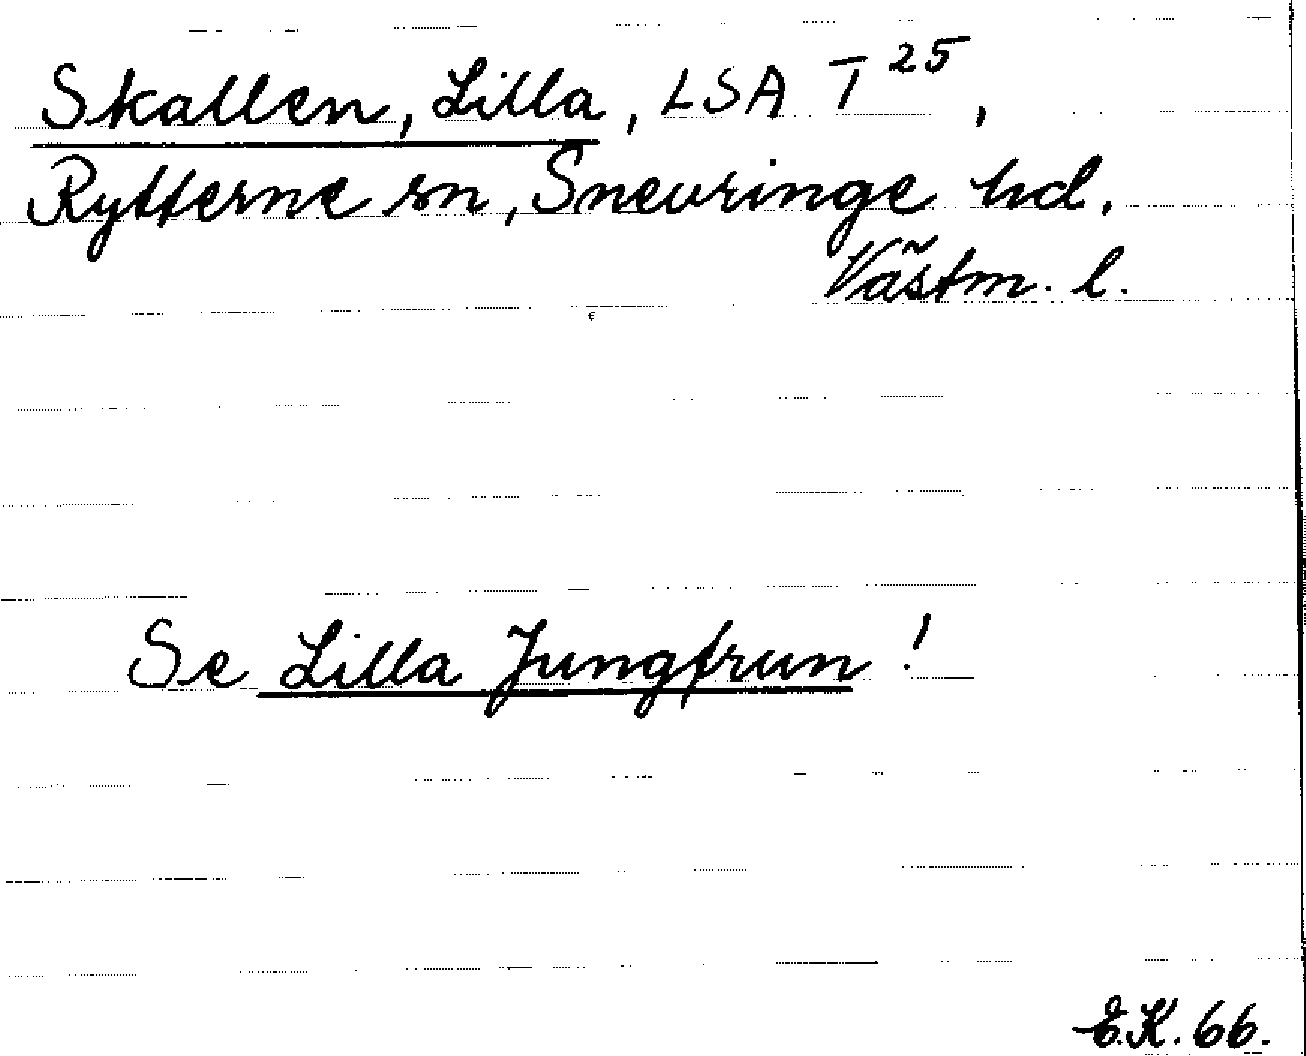 Skallen, Lilla, LSA T 25,
Rytterne sn, Snevringe hd.
Västm. l.
Se Lilla Jungfrun!
E.K. 66.